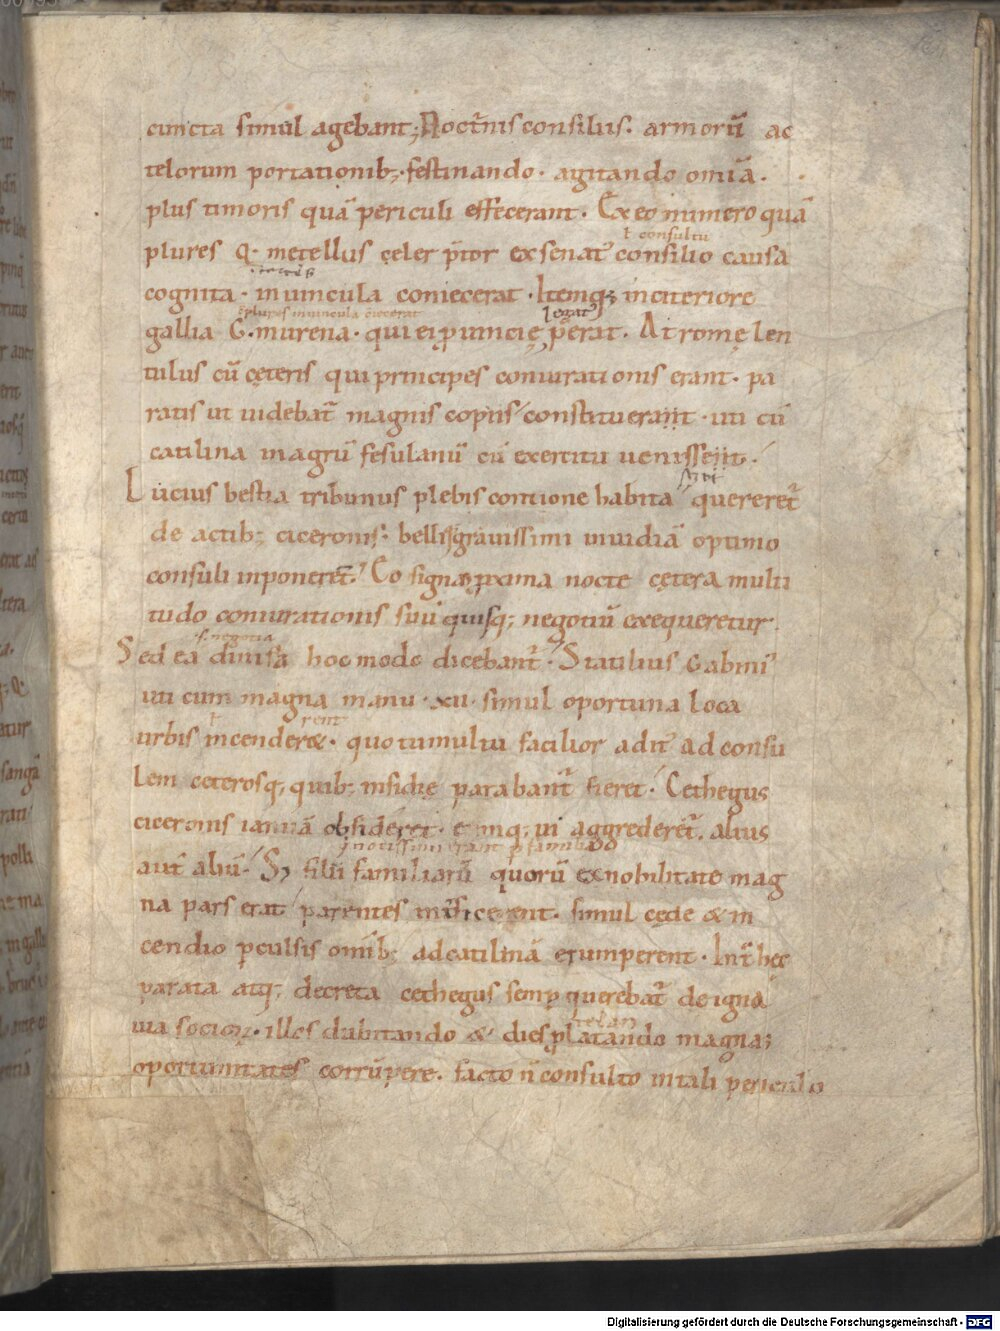 cuncta simul agebant; Noct̄nis consiliis. armorū ac
telorum portationib;· festinando· agitando om̄ia·
plus timoris quā periculi effecerant· Ex eo numero quā
ł consultu
plures Q· metellus celer p̄tor ex senat᾽ consilio causa
cognita· in uincula coniecerat· Itemq; in citeriore
plures in uincula legat᾽
gallia G· murena· qui ei puincię p̄erat. At romę len
tulus cū cęteris qui principes coniurationis erant· pa
ratis ut uidebat᾽ magnis copiis constituerant· uti cū
catilina in agrū fesulanū cū exercitu uenissent·
Lucius bestia tribunus plebis contione habita quereret᾽
de actib; ciceronis· belliq; grauissimi inuidiā optimo
consuli inponeret. Eo signo pxima nocte cętera multi
tudo coniurationis suū quisq; negotiū exequeretur.
s. negotia
Sed ea diuisa hoc modo dicebant᾽· Statilius & Gabini᾽
uti cum magna manu· xii· simul oportuna loca
ł rent
urbis incenderet· quo tumultu facilior adit᾽ ad consu
lem ceterosq; quib; insidię parabant᾽ fieret· Cethegus
ciceronis ianuā obsideret· eumq; ui aggrederet᾽. alius
aut̄ aliū· S; filii familiarū quorū ex nobilitate mag
na pars erat parentes inficerent· simul cęde & in
cendio pculsis omīb; ad catilinā erumperent· Int᾽ hec
parata atq; decreta cethegus semp querebat᾽ de igna
uia socior̄· illos dubitando & dies platando magnas
oportunitates corrūpere. facto n̄ consulto in tali periculo
Digitalisierung gefördert durch die Deutsche Forschungsgemeinschaft - DFG